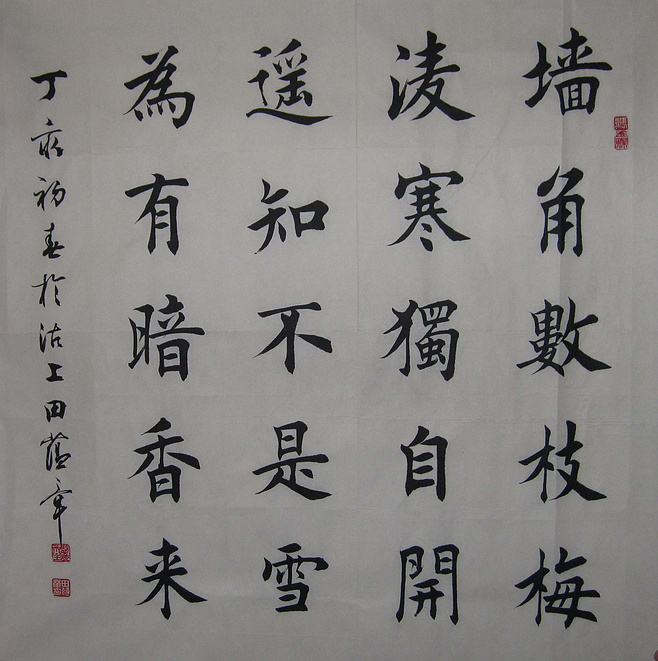 墙角數枝梅
凌寒獨自開
遥知不是雪
為有暗香来
丁亥初春於沽上田蕴章